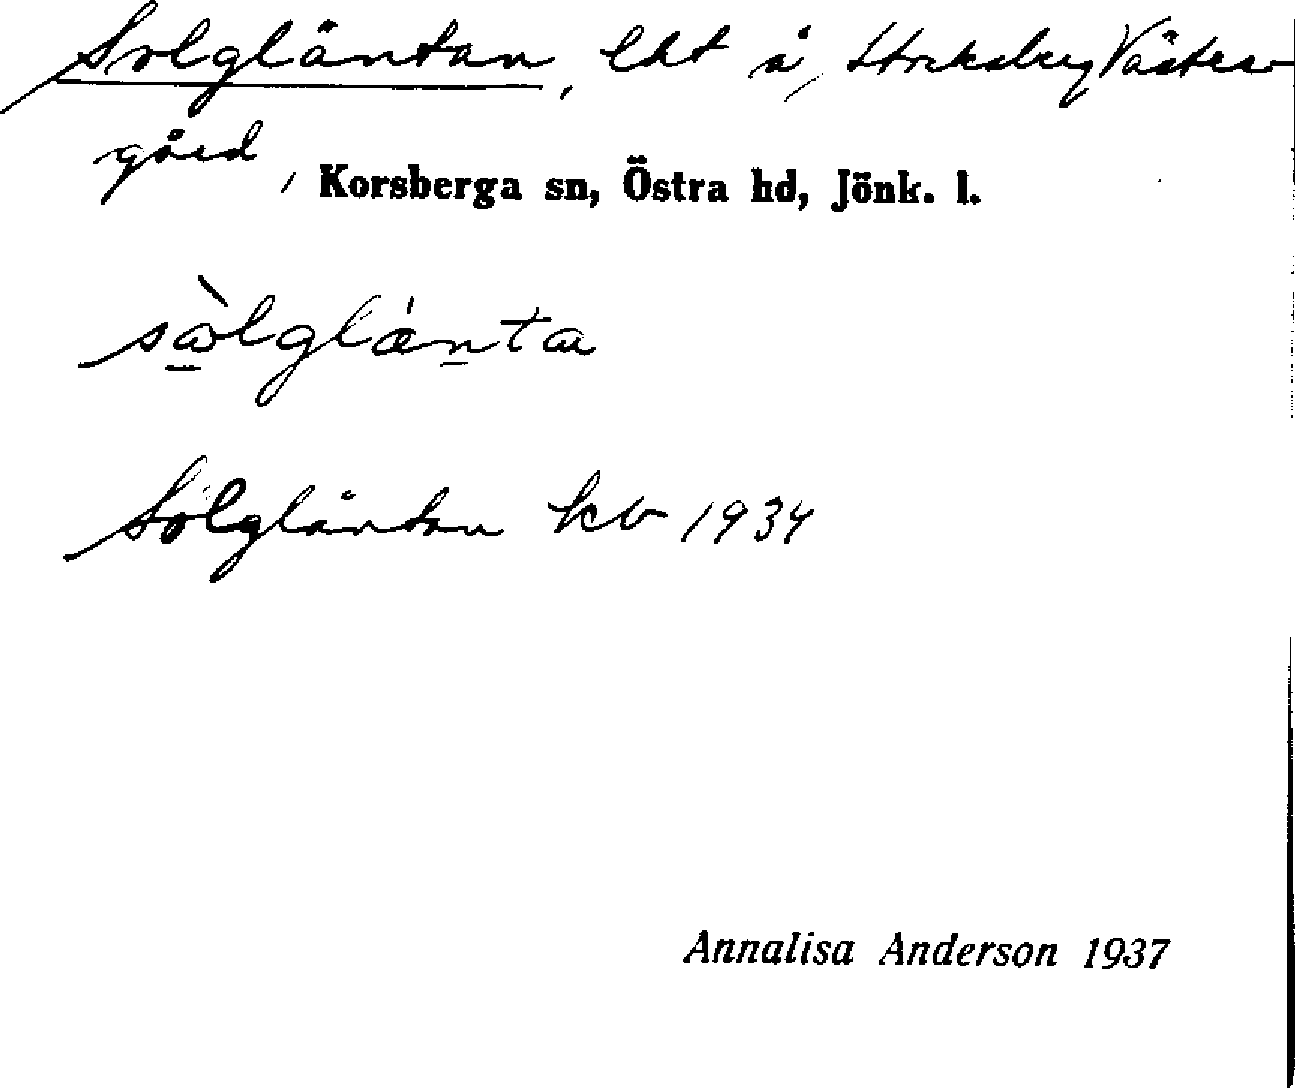 Solgläntan, lht å, Stocksberg Väster-
gård, Korsberga sn, Östra hd, Jönk. l.
sòlglánta
Solgläntan kb 1934
Annalisa Anderson 1937